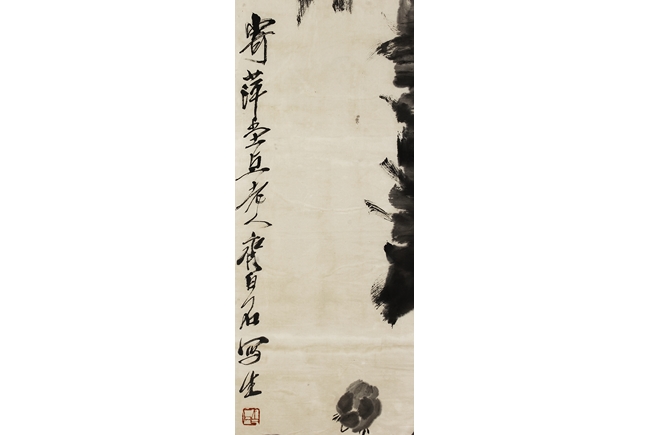 寄萍堂上老人齊白石寫生